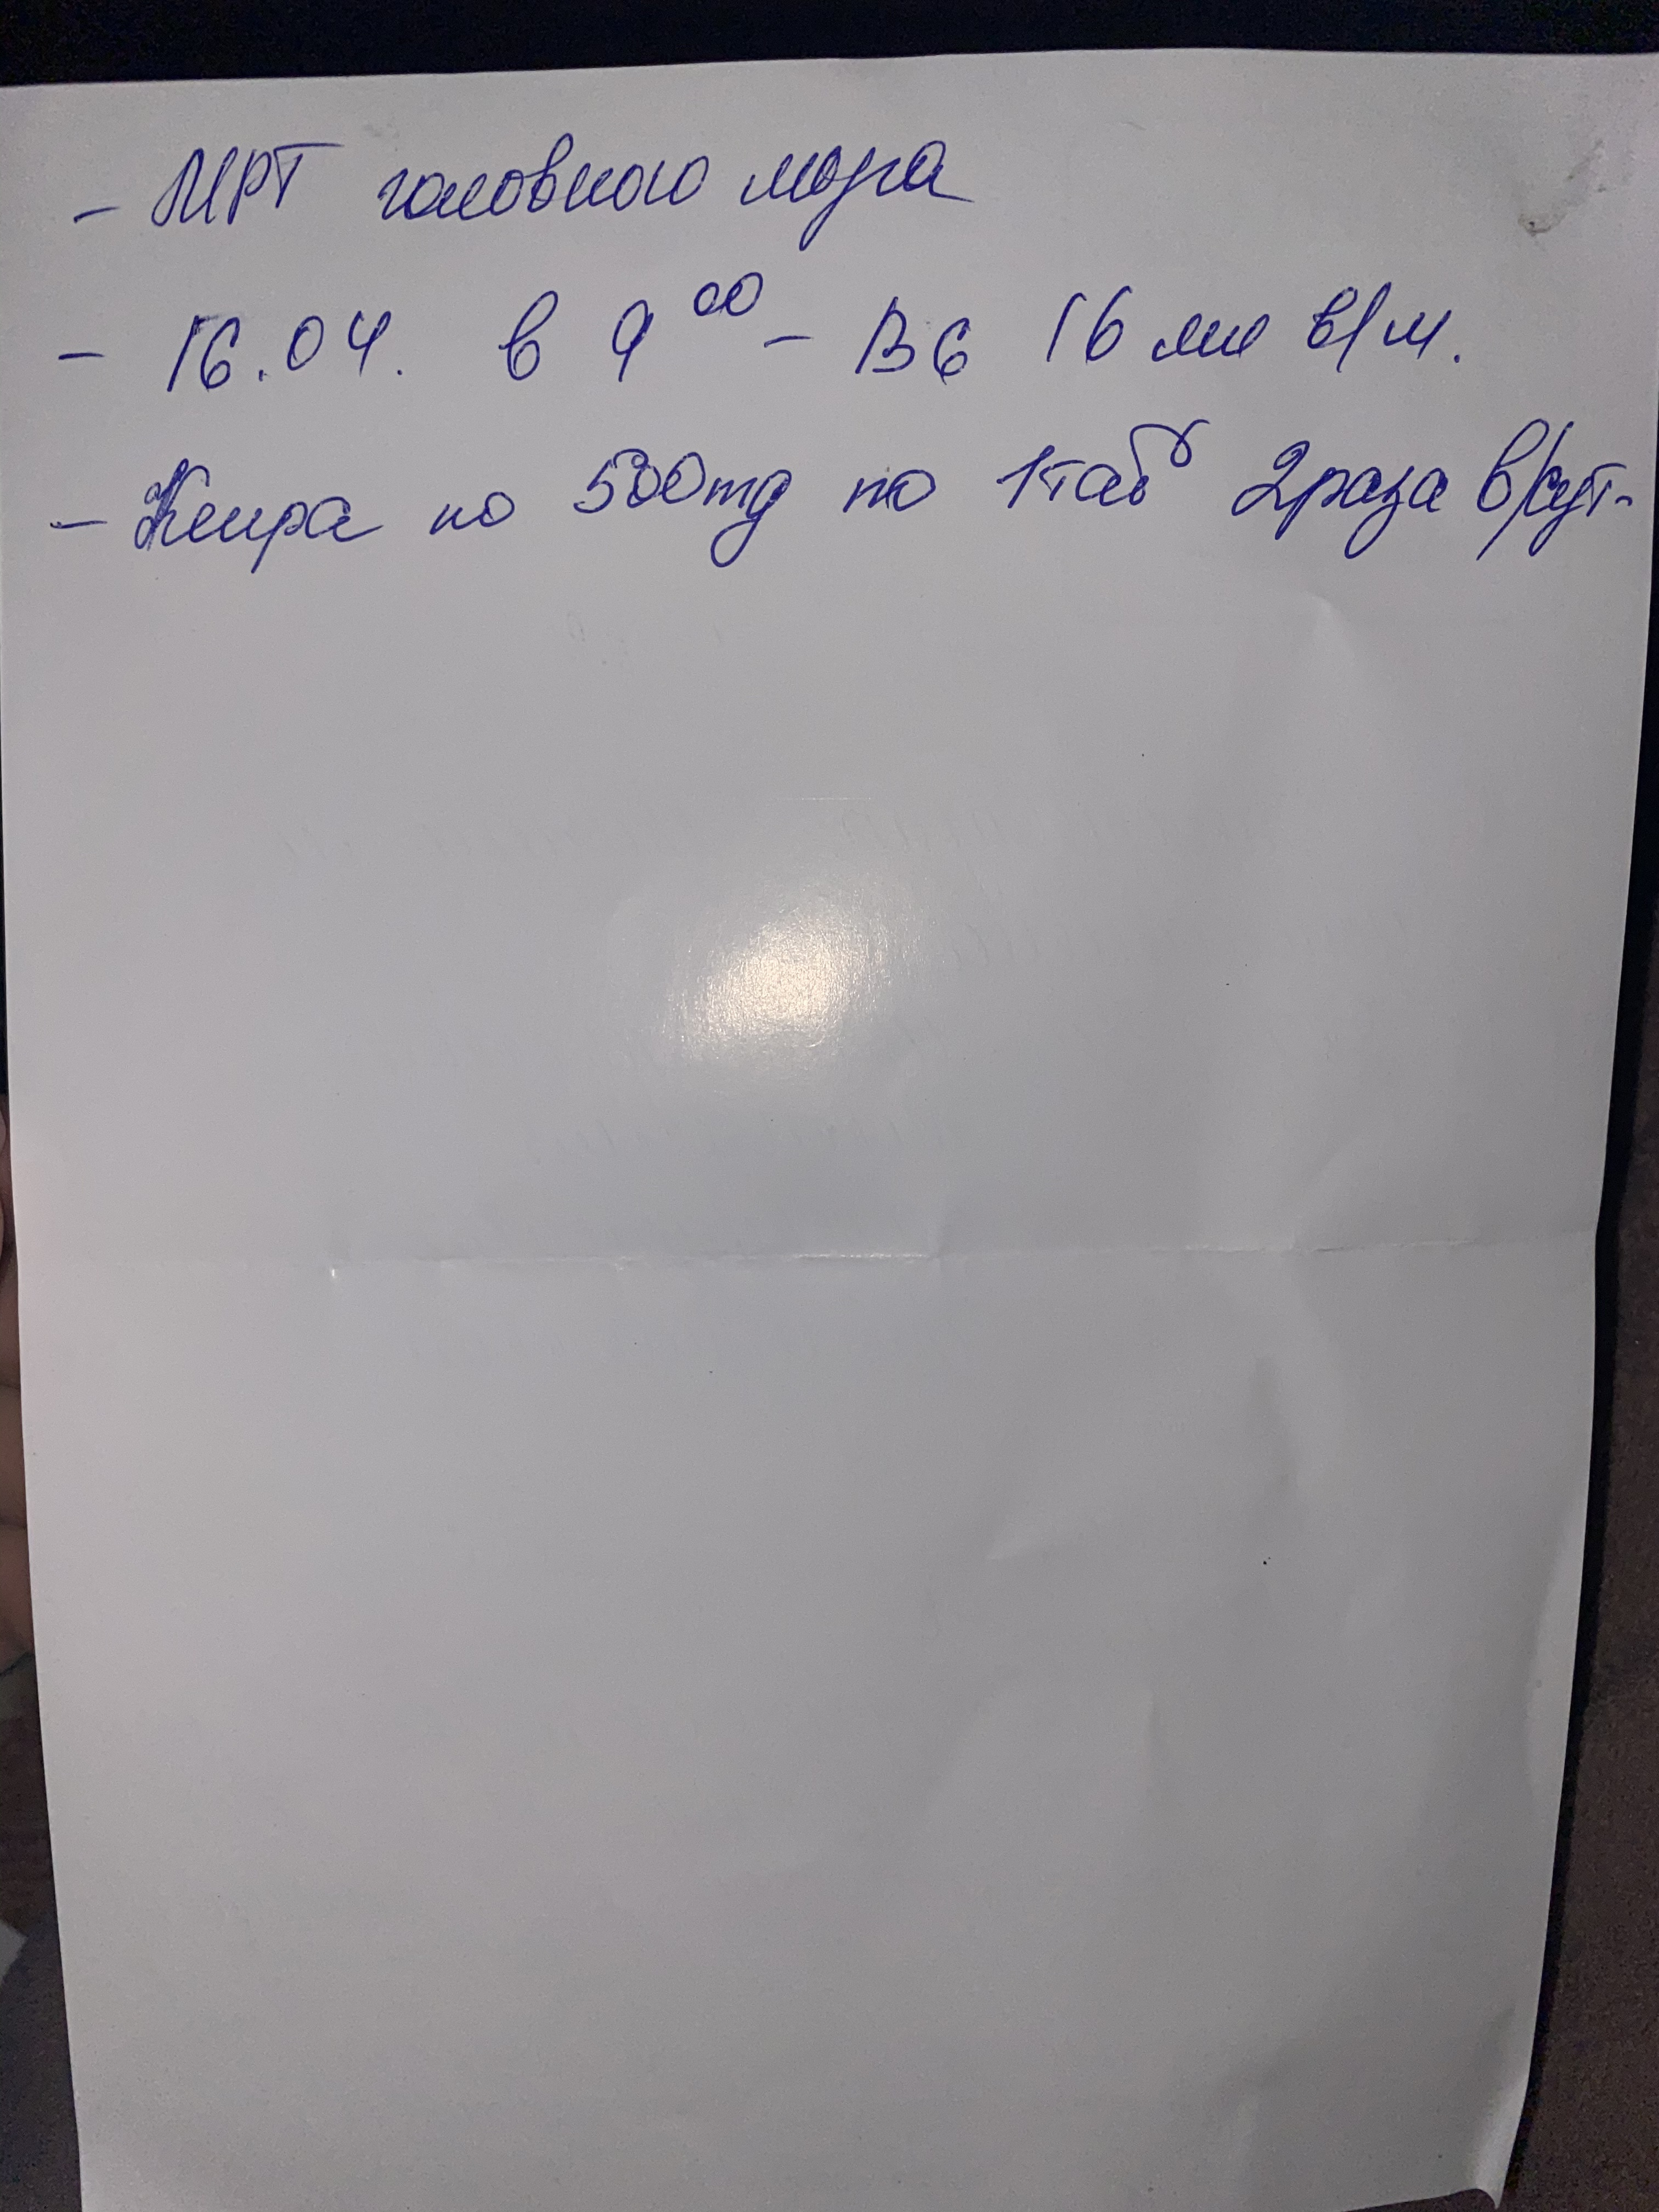 - МРТ головного мозга
- 16.04. в 9 00 - В6 16 мл в/м.
- Кепра по 500mg по 1таб 2раза в/сут.